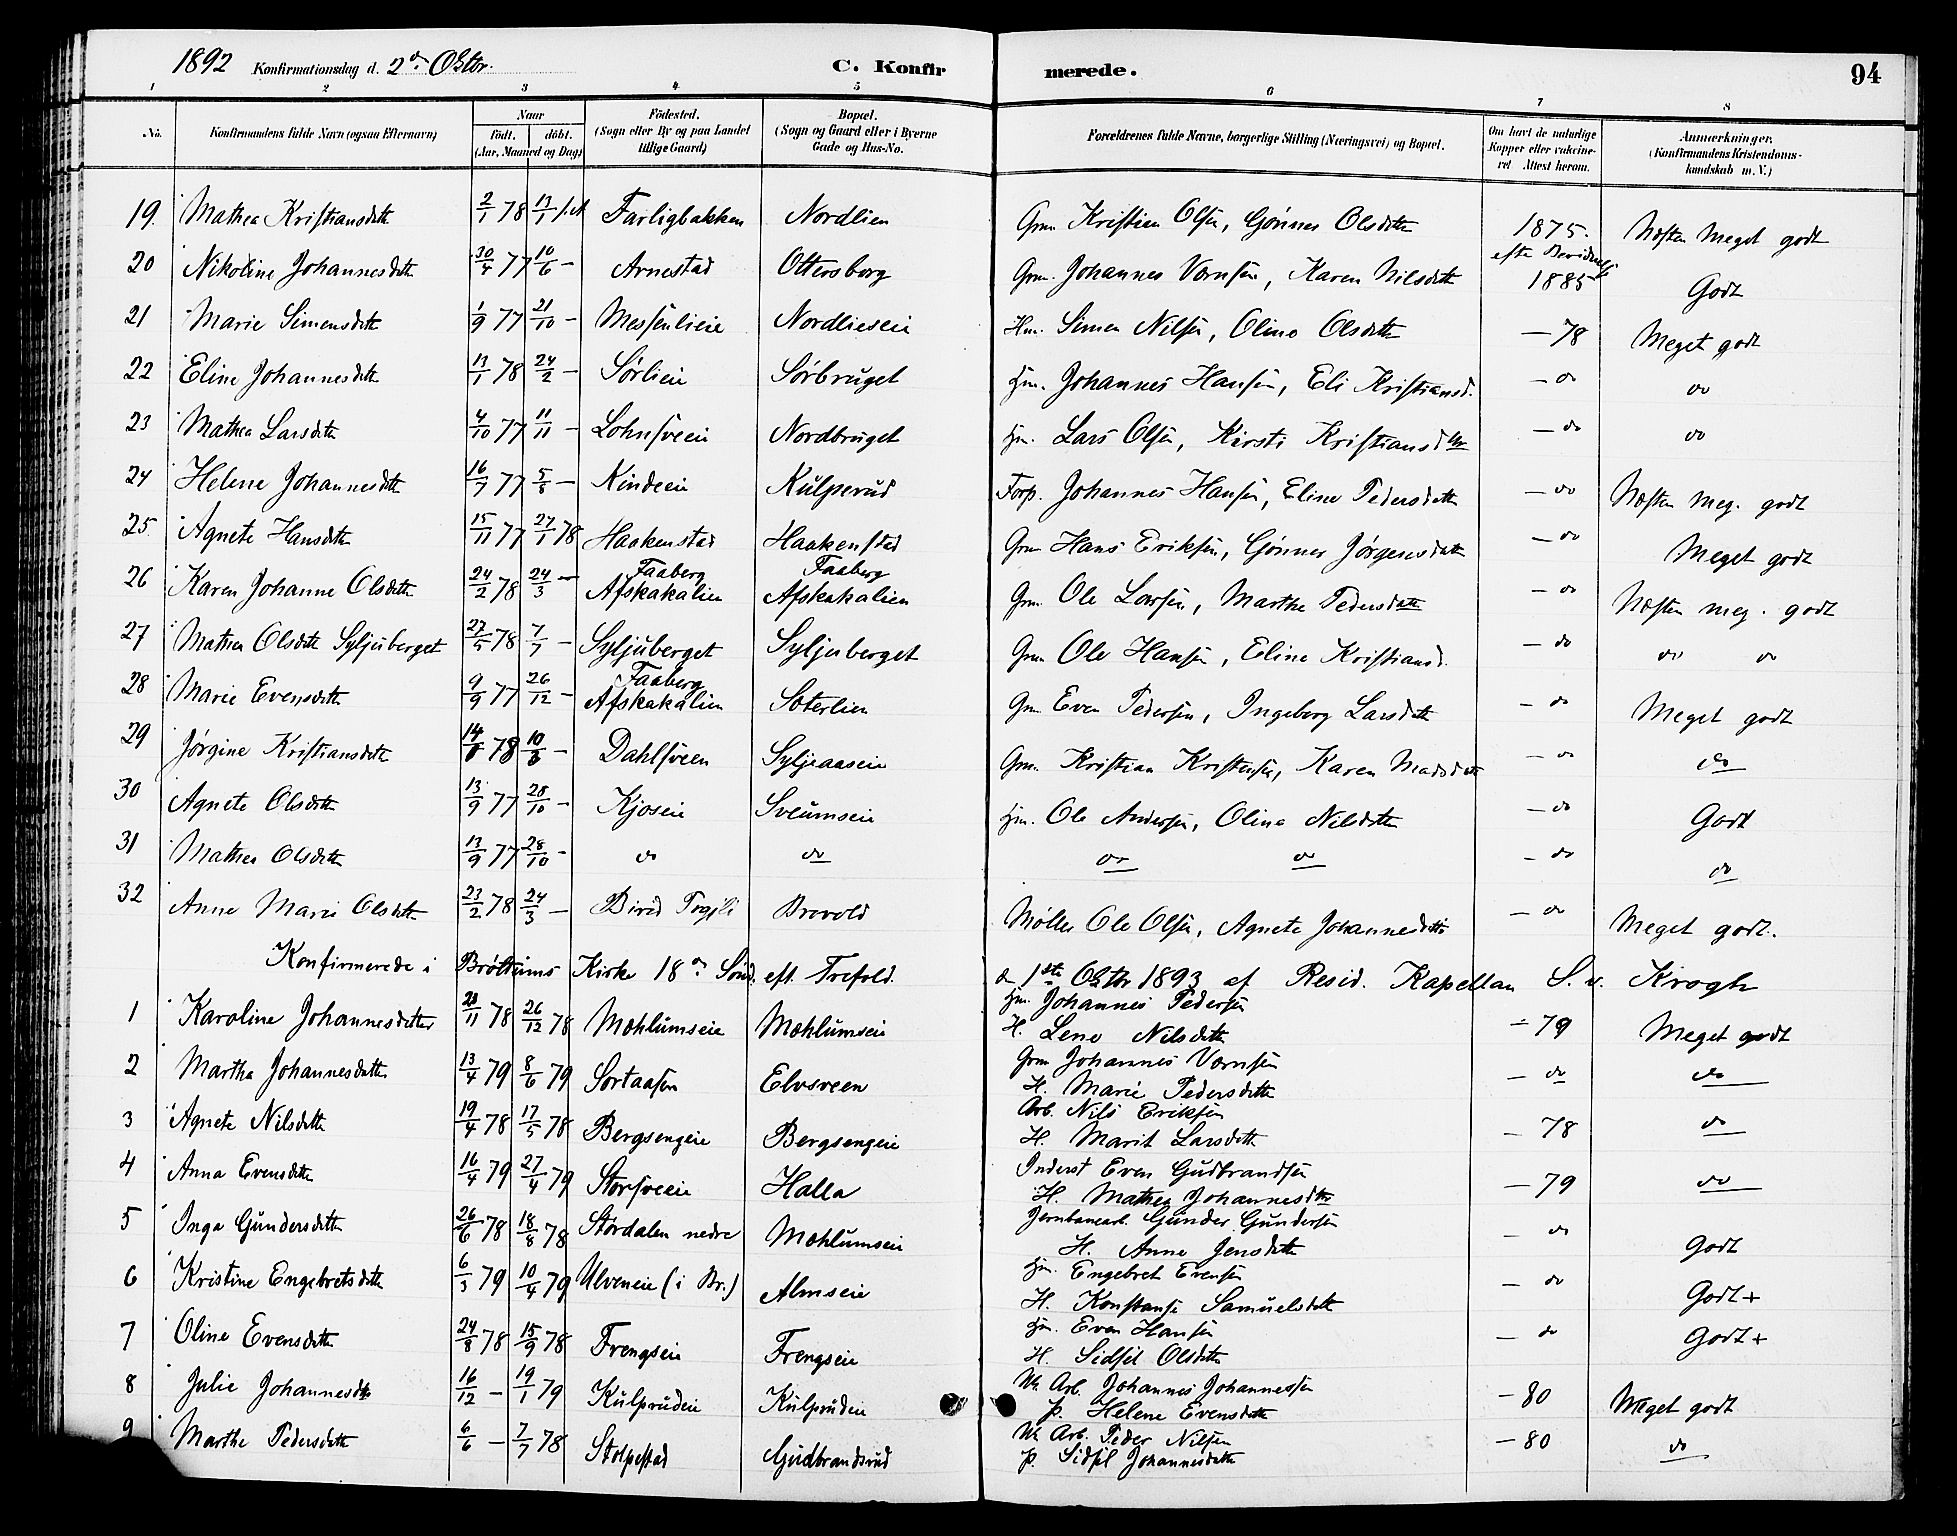 1892 Konfirmationsdag d. 2den Oktbr. C. Konfirmerede. 94
1 2 3 4 5 6 7 8
No. Konfirmandens fulde Navn (ogsaa Efternavn) Naar født. døbt. (Aar, Maaned og Dag) Fødested. (Sogn eller By og paa Landet tillige Gaard) Bopæl. (Sogn og Gaard eller i Byerne Gade og Hus-No. Forældrenes fulde Navne, borgerlige Stilling (Næringsvei) og Bopæl. Om havt de naturlige Kopper eller vaccineret Attest herom. Anmærkninger. (Konfirmandens Kristendomskundskab m. V.)
19. Mathea Kristiansdttr 2/1 78 13/1 s.A Farligbakken Nordlien Grm Kristian Olsen, Gønner Olsdatter 1875. Næsten Meget godt
20 Nikoline Johannesdatter 30/4 77 10/6 — Arnestad Ottersborg Grm. Johannes Vernsen, Karen Nilsdatter 1885 Godt
21 Marie Simensdttr 1/9 77 21/10 — Messenlieie Nordlieseie Hm. Simen Nilsen, Oline Olsdatter — 78 Meget godt
22 Eline Johannesdttr 13/1 78 24/2 — Sørlieie Sørbruget Hm. Johannes Hansen, Eli Kristiansd. — do do
23 Mathea Larsdttr 4/10 77 11/11 — Lohnsveeie Nordbruget Hm. Lars Olsen, Kirsti Kristiansdttr — do do
24 Helene Johannesdttr 16/7 77 5/8 — Kindeeie Kulperud Forp. Johannes Hansen, Eline Pedersdatter — do Næsten meg. godt
25. Agnete Hansdttr 15/11 77 27/1 78 Haakenstad Haakenstad Grm Hans Eriksen, Gønner Jørgensdatter — do Meget godt
26 Karen Johanne Olsdttr 24/2 78 24/3 — Faaberg Afskakalien Faaberg Afskakalien Grm. Ole Larsen, Marthe Pedersdatter — do Næsten meg. godt
27 Mathea Olsdttr Syljuberget 27/5 78 7/7 — Syljuberget Syljuberget Grm Ole Hansen, Eline Kristiansd. — do do do
28 Marie Evensdttr 9/9 77 26/12 — Faaberg Afskakalien Sæterlien Grm Even Pedersen, Ingeborg Larsdttr — do Meget godt
29 Jørgine Kristiansdttr 78 — Dahlsveen Syljeaaseie Grm. Kristian Kristensen, Karen Madsdttr — do do
30 Agnete Olsdttr 13/9 77 28/10 — Kjoseie Sveumseie Hm. Ole Andersen, Oline Nilsdatter — do Godt
31 Mathea Olsdttr 13/9 77 28/10 — do do do do — do do
32 Anne Marie Olsdttr 23/2 78 24/3 — Birid Brovold Møller Ole Olsen, Agnete Johannesdatter — do Meget godt.
Konfirmerede i Brøttums Kirke 18de Sønd. eft. Trefold. d. 1ste Oktbr 1893 af Resid. Kapellan S. v. Krogh
1 Karoline Johannesdatter 11 78 26/12 78 Mæhlumseie Mæhlumseie Hm. Johannes Pedersen
H. Lene Nilsdttr — 79 Meget godt
2 Martha Johannesdatter 13/4 79 8/6 79 Sortaasen Elvsveen Grm Johannes Vernsen
H. Marie Pedersdatter — do do
3 Agnete Nilsdttr 19/4 78 17/5 78 Bergsengeie Bergsengeie Arb. Nils Eriksen
H. Marit Larsdatter — 78 do
4 Anna Evensdttr 16/4 79 27/4 79 Storsveeie Halla Inderst Even Gudbrandsen
H. Mathea Johannesdttr — 79 do
5 Inga Gundersdttr 26/6 78 18/8 78 Stordalen nedre Mæhlumseie Jernbanearb. Gunder Gundersen
H. Anne Jensdatter — do Godt
6 Kristine Engebretsdttr 6/3 79 10/4 79 Ulveneie (i Br.) Almseie Hm. Engebret Evensen
H. Konstanse Samuelsdttr — do Godt+
7 Oline Evensdttr 24/8 78 15/9 78 Frengseie Frengseie Hm. Even Hansen
H. Sidsel Olsdttr — do Godt+
8 Julie Johannesdttr 16/12 — 19/1 79 Kulprudeie Kulprudeie Uk Arb. Johannes Johannessen
p. Helene Evensdatter — 80 Meget godt
9 Marthe Pedersdttr 6/6 — 7/7 78 Stolpestad Gudbrandsrud Uk Arb. Peder Nilsen
p. Sidsel Johannesdatter — 80 do